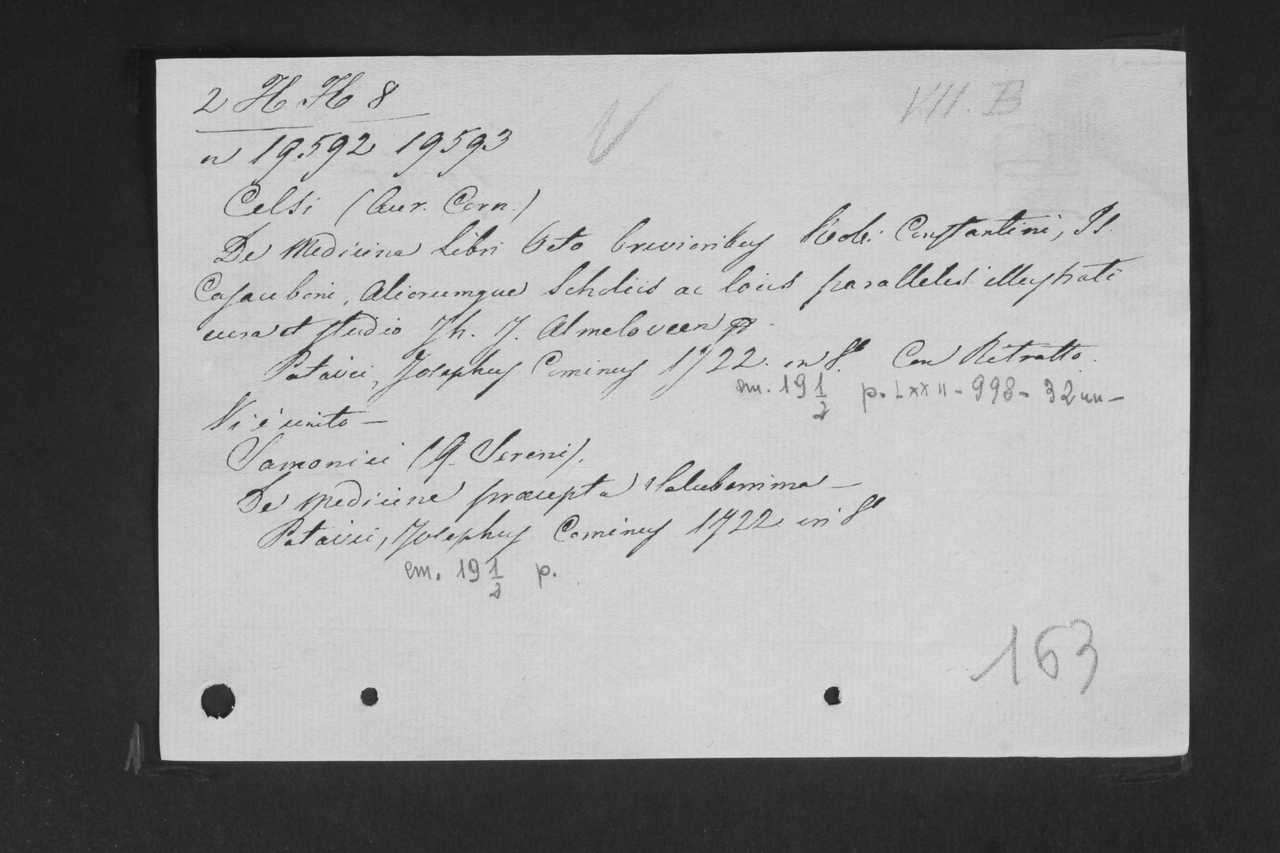 2 H. H. 8
VII. B
V
n 19592 19593
Celsi (Aur. Corn.)
De Medicina Libri Octo brevioribus Rob: Constantini, Is.
Casauboni, Aliorumque Scholiis ac locis parallelis illustrati
cura et studio Th. J. Almeloveen
Patavii, Josephus Cominus 1722. in 8º. Con Ritratto.
cm. 19 1/2 p. LXXII - 998 - 32 nn -
Vi è unito -
Samonici (Q. Sereni).
De Medicine præcepta saluberrima -
Patavii, Josephus Cominus 1722 in 8º
cm. 19 1/2 p.
163
1